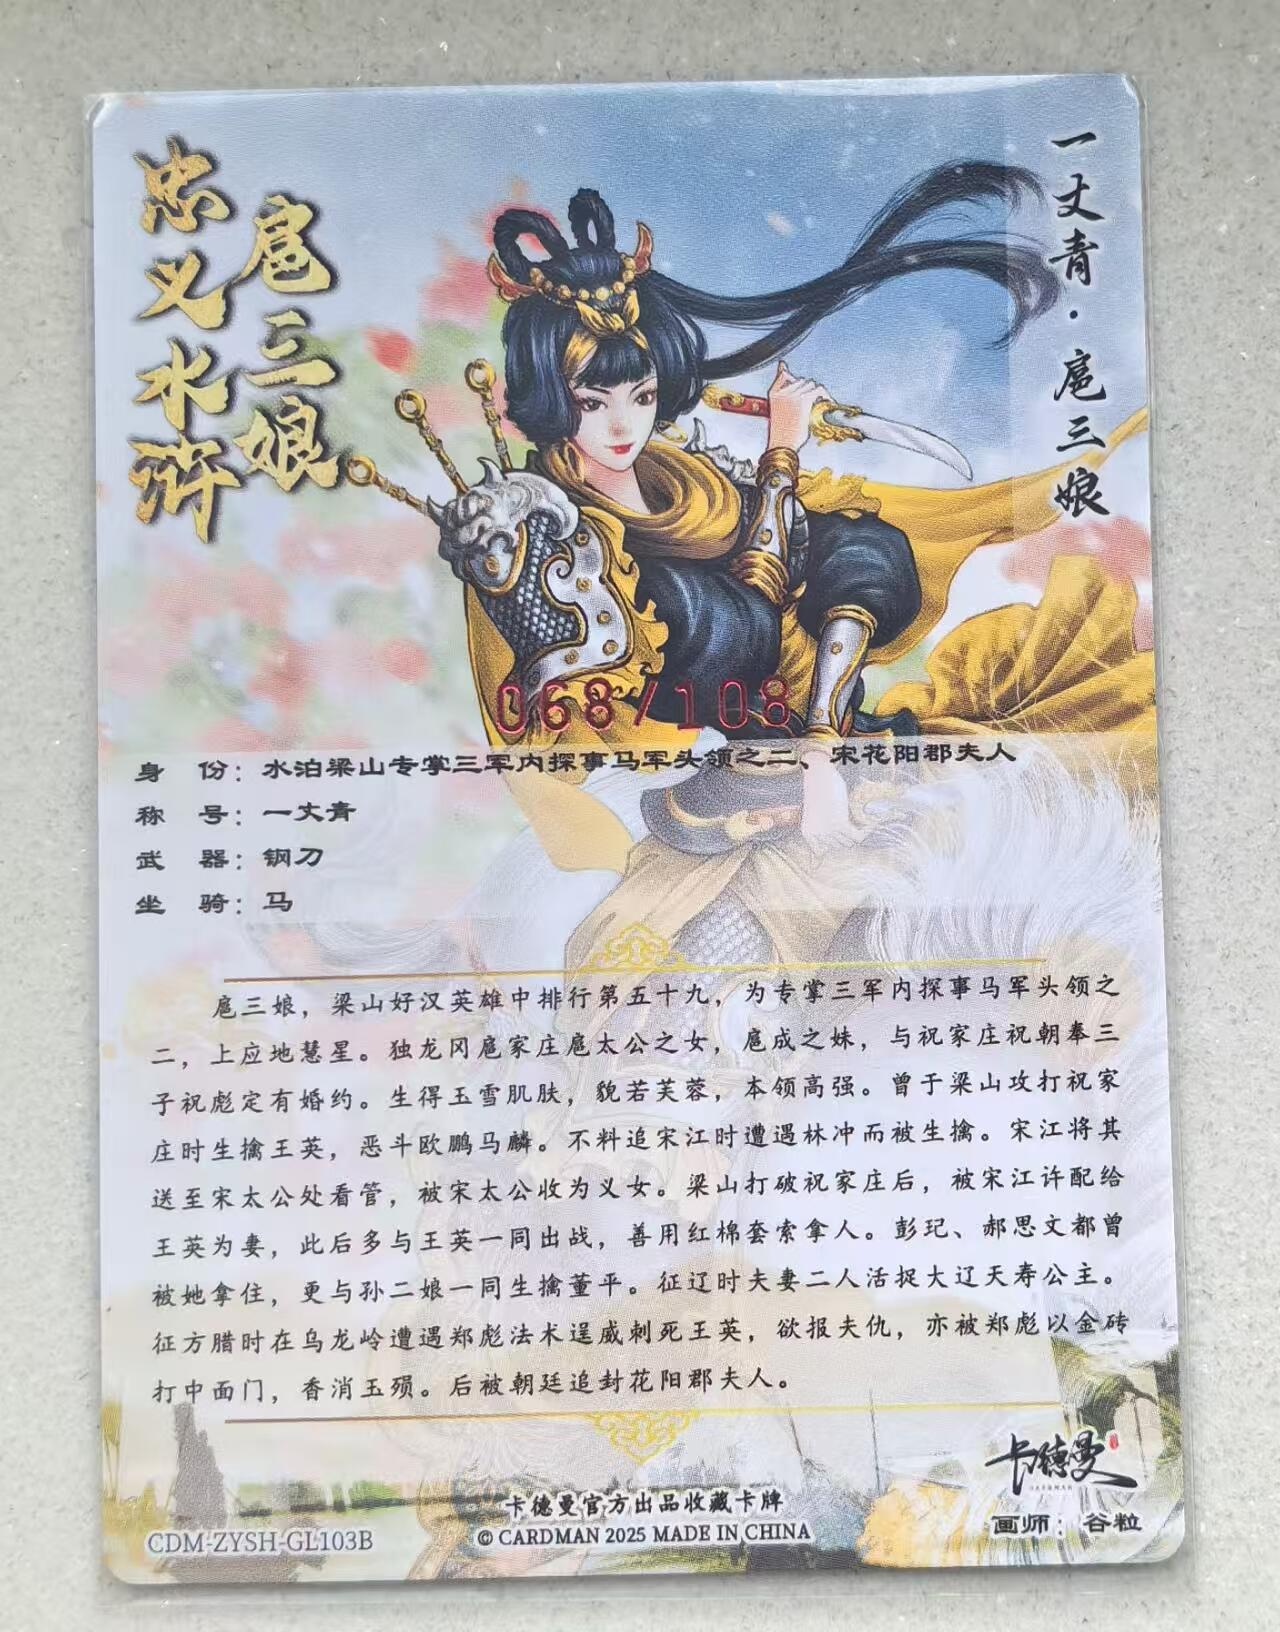 忠义水浒
扈三娘
一丈青·扈三娘
068/108
身 份：水泊梁山专掌三军内探事马军头领之二、宋花阳郡夫人
称 号：一丈青
武 器：钢刀
坐 骑：马
扈三娘，梁山好汉英雄中排行第五十九，为专掌三军内探事马军头领之
二，上应地慧星。独龙冈扈家庄扈太公之女，扈成之妹，与祝家庄祝朝奉三
子祝彪定有婚约。生得玉雪肌肤，貌若芙蓉，本领高强。曾于梁山攻打祝家
庄时生擒王英，恶斗欧鹏马麟。不料追宋江时遭遇林冲而被生擒。宋江将其
送至宋太公处看管，被宋太公收为义女。梁山打破祝家庄后，被宋江许配给
王英为妻，此后多与王英一同出战，善用红棉套索拿人。彭玘、郝思文都曾
被她拿住，更与孙二娘一同生擒董平。征辽时夫妻二人活捉大辽天寿公主。
征方腊时在乌龙岭遭遇郑彪法术逞威刺死王英，欲报夫仇，亦被郑彪以金砖
打中面门，香消玉殒。后被朝廷追封花阳郡夫人。
卡德曼
CARDMAN
卡德曼官方出品收藏卡牌
CDM-ZYSH-GL103B
© CARDMAN 2025 MADE IN CHINA
画师：谷粒